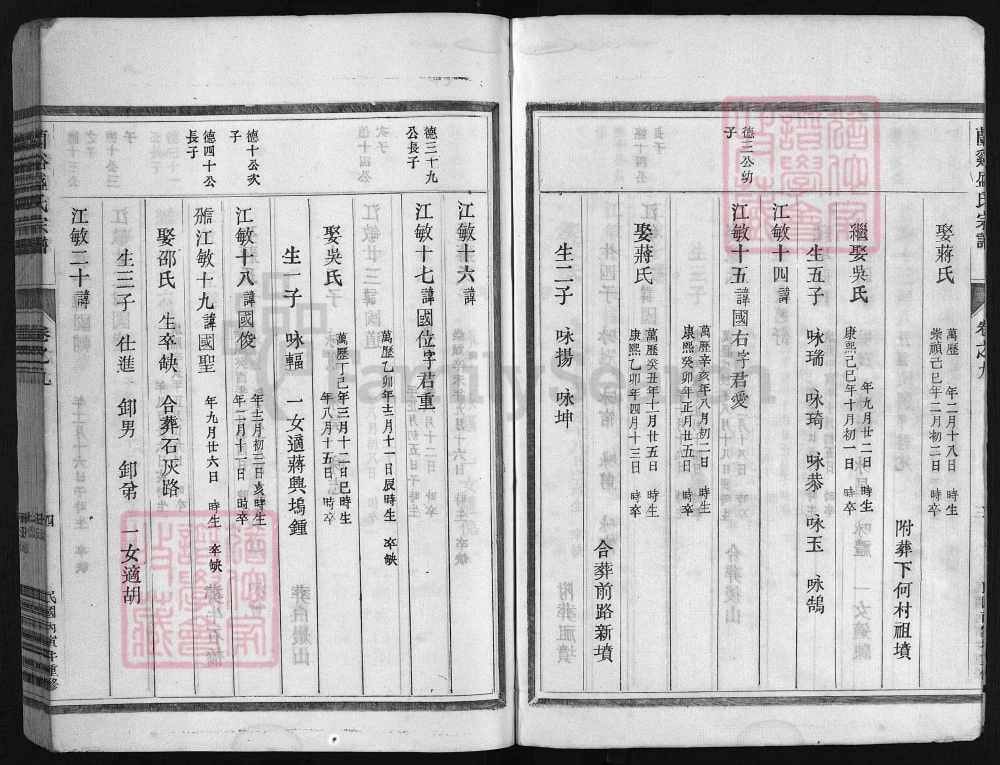 蘭谿盛氏宗譜
卷之九
三
娶蔣氏
萬歷 年二月十八日 時生
崇禎己巳年二月初二日 時卒
附葬下何村祖墳
繼娶吳氏
年九月廿二日 時生
康熙己巳年十月初一日 時卒
生五子 咏瑞 咏琦 咏恭 咏玉 咏鵠
江敏十四諱
德三公幼子
江敏十五諱國右字君愛
萬歷辛亥年八月初二日 時生
康熙癸卯年正月廿五日 時卒
娶蔣氏
萬歷癸丑年十月廿五日 時生
康熙乙卯年四月十三日 時卒
合葬前路新墳
生二子 咏揚 咏坤
江敏十六諱
德三十九公長子
江敏十七諱國位字君重
萬歷乙卯年十二月十一日辰時生 卒缺
娶吳氏
萬歷丁巳年三月十二日巳時生
年八月十五日 時卒
生一子 咏輻 一女適蔣興塢鍾
德十公次子
江敏十八諱國俊
年十二月初三日亥時生
年二月十二日 時卒
德四十公長子
江敏十九諱國聖
年九月廿六日 時生 卒缺
娶邵氏 生卒缺 合葬石灰路
生三子 仕進 卸男 卸弟 一女適胡
江敏二十諱
蘭谿盛氏宗譜
卷之九
四
民國丙寅年重修